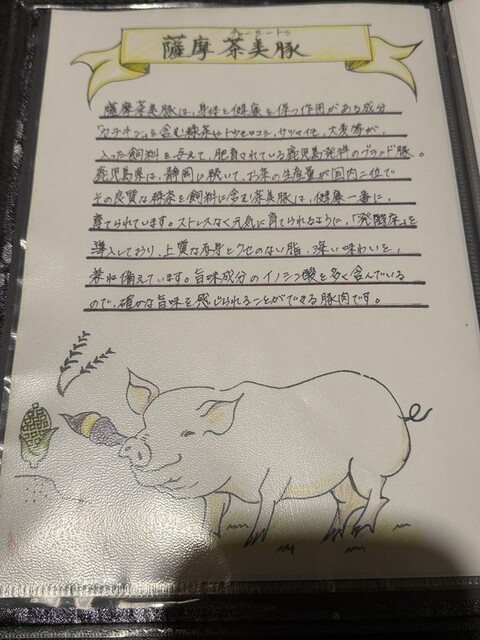 チャーミートン
薩摩 茶美豚
薩摩茶美豚は、身体と健康を保つ作用がある成分
「カテキン」を含む緑茶やトウモロコシ、サツマイモ、大麦等が
入った飼料を与えて、肥育されている鹿児島発祥のブランド豚。
鹿児島県は、静岡に続いて、お茶の生産量が国内二位で
その良質な緑茶を飼料に含む茶美豚は、健康一番に
育てられています。ストレスなく元気に育てられるように、「発酵床」を
導入しており、上質な赤身とクセのない脂、深い味わいを
兼ね備えています。旨味成分のイノシン酸を多く含んでいる
ので、確かな旨味を感じられることができる豚肉です。